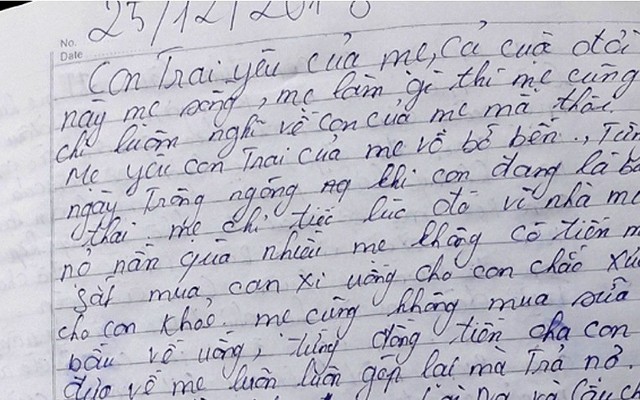 No.
Date
25/12/201
Con Trai yêu của mẹ, cả cuộc đời
này mẹ sống, mẹ làm gì thì mẹ cũng
chỉ luôn nghĩ về con của mẹ mà thôi
Mẹ yêu con Trai của mẹ vô bờ bến.,
ngày Trông ngóng khi con đang là
thai mẹ chỉ tiếc lúc đó vì nhà mẹ
nở nần quá nhiều mẹ không có tiền
sắt mua, can xi uống cho con chắc
cho con khoẻ. mẹ cũng không mua sữa
bầu về uống, từng đồng tiền cha con
đưa về mẹ luôn luôn gôn lại mà Trả nở.